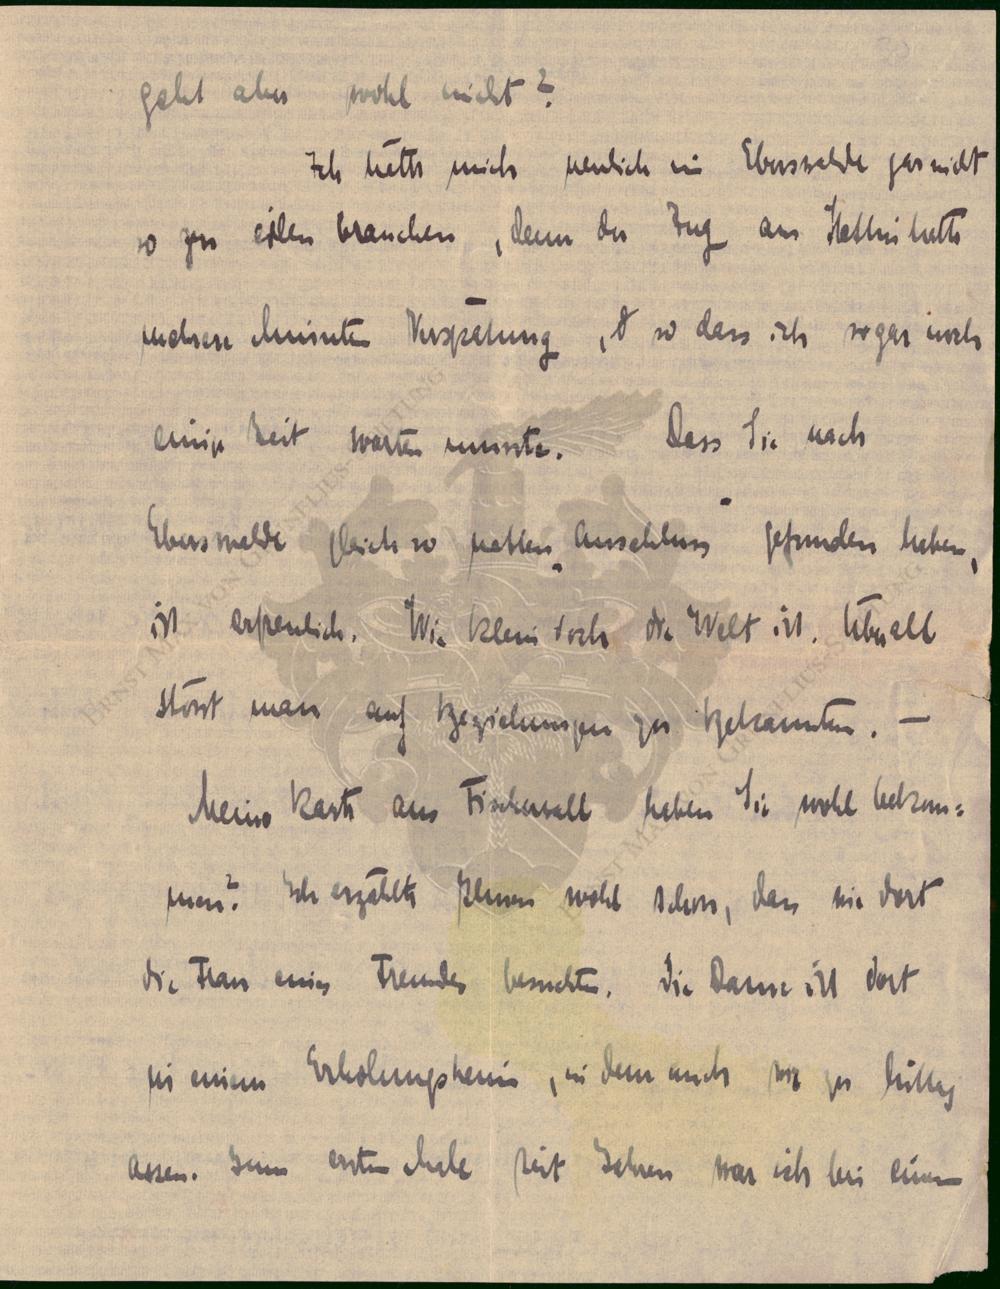 geht aber wohl nicht?
Ich hätte mich neulich in Eberswalde gar nicht
so zu eilen brauchen, denn der Zug aus Stettin hatte
mehrere Minuten Verspätung, so dass ich sogar noch
einige Zeit warten musste. Dass Sie nach
Eberswalde gleich so netten Anschluss gefunden haben,
ist erfreulich. Wie klein doch die Welt ist. Überall
stösst man auf Beziehungen zu Bekannten. —
Meine Karte aus Fischerwall haben Sie wohl bekom=
men? Ich erzählte Ihnen wohl schon, dass wir dort
die Frau eines Freundes besuchten. Die Dame ist dort
in einem Erholungsheim, in dem auch wir zu Mittag
assen. Zum ersten Male seit Jahren war ich bei einem
ERNST MAX VON GRUNELIUS-STIFTUNG
ERNST MAX VON GRUNELIUS-STIFTUNG